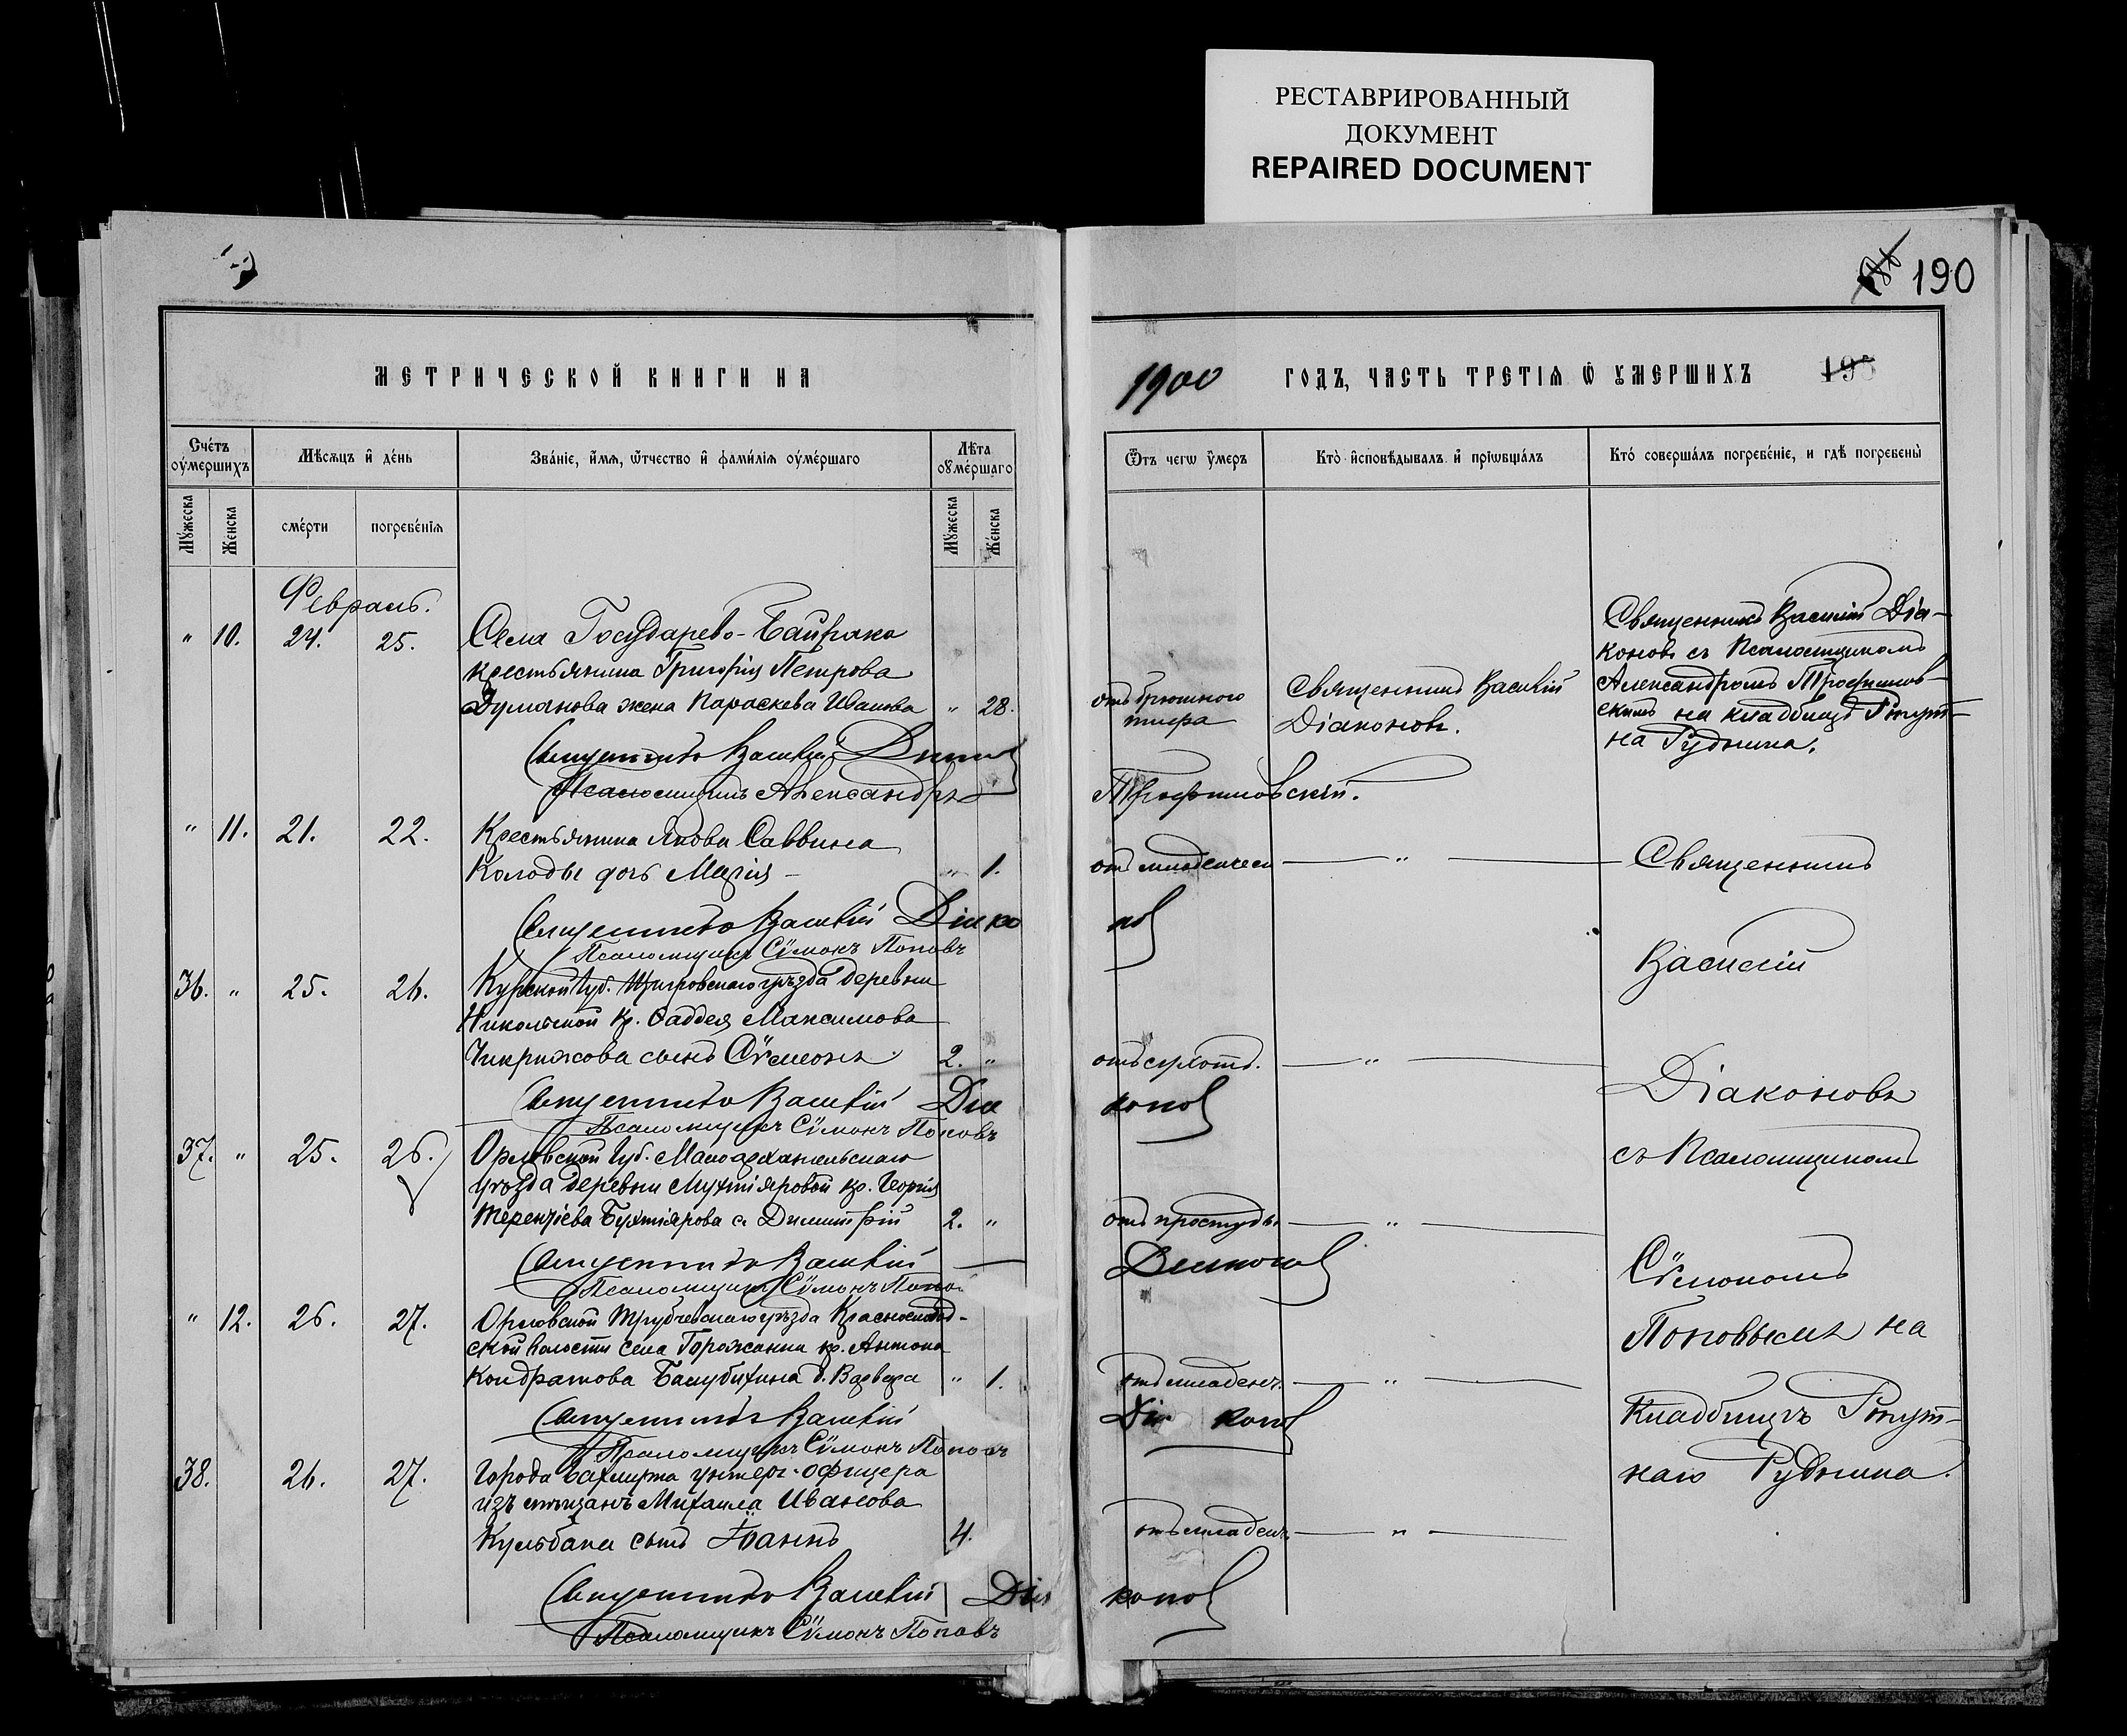 РЕСТАВРИРОВАННЫЙ
ДОКУМЕНТ
REPAIRED DOCUMENT
190
МЕТРИЧЕСКОЙ КНИГИ НА
1900 ГОДЪ, ЧАСТЬ ТРЕТІЯ Ѿ ОУМЕРШИХЪ 195
Счетъ оумершихъ
Мѣсяцъ и день
Званіе, имя, ѿчество и фамилія оумершаго
Лѣта оумершаго
Ѿтъ чегѡ умеръ
Кто исповѣдывалъ и пріѡбщалъ
Кто совершалъ погребеніе, и гдѣ погребены
Мужеска
Женска
смерти
погребенія
Мужеска
Женска
Февраль.
" 10. 24. 25. Села Государево-Байрака
крестьянина Григорія Петрова
Думанова жена Параскева Иванова " 28.
отъ брюшного
тифа
Священникъ Василій
Діаконовъ.
Священникъ Василій Діа-
коновъ съ Псаломщикомъ
Александромъ Трофимов-
скимъ на кладбищѣ
на Рудника.
Священникъ Василій
Псаломщикъ Александръ Трофимовскій.
" 11. 21. 22. Крестьянина Якова Саввина
Колоды дочь Марія - " 1.
отъ младенческ — " — Священникъ
Священникъ Василій Діаконов
Псаломщикъ Сѵмонъ Поповъ
Василій
36. " 25. 26. Курской губ. Щигровскаго уѣзда деревни
Никольской кр. Ѳаддея Максимова
Чикрижова сынъ Сѵмеонъ. 2. "
отъ сухотъ. — " —
Священникъ Василій Діаконов
Псаломщикъ Сѵмонъ Поповъ
Діаконовъ
съ Псаломщикомъ
37. " 25. 26. Орловской губ. Малоархангельскаго
уѣзда деревни Мухтіяровой кр. Георгія
Терентіева Бухтіярова с. Димитрій 2. "
отъ простуды — " —
Священникъ Василій Діаконов
Псаломщикъ Сѵмонъ Попов
Сѵмономъ
Поповымъ на
" 12. 26. 27. Орловской Трубчевскаго уѣзда
ской волости села Горожанки кр. Антона
Кондратова д. Варвара " 1.
отъ младенч. — " —
Священникъ Василій Діаконов
Псаломщикъ Сѵмонъ Поповъ
Кладбищѣ
наго Рудника.
38. 26. 27. Города Бахмута унтеръ-офицера
изъ мѣщанъ Михаила Иванова
Кульбаки сынъ Іоаннъ 4.
отъ младенч. — " —
Священникъ Василій Діаконов
Псаломщикъ Сѵмонъ Поповъ